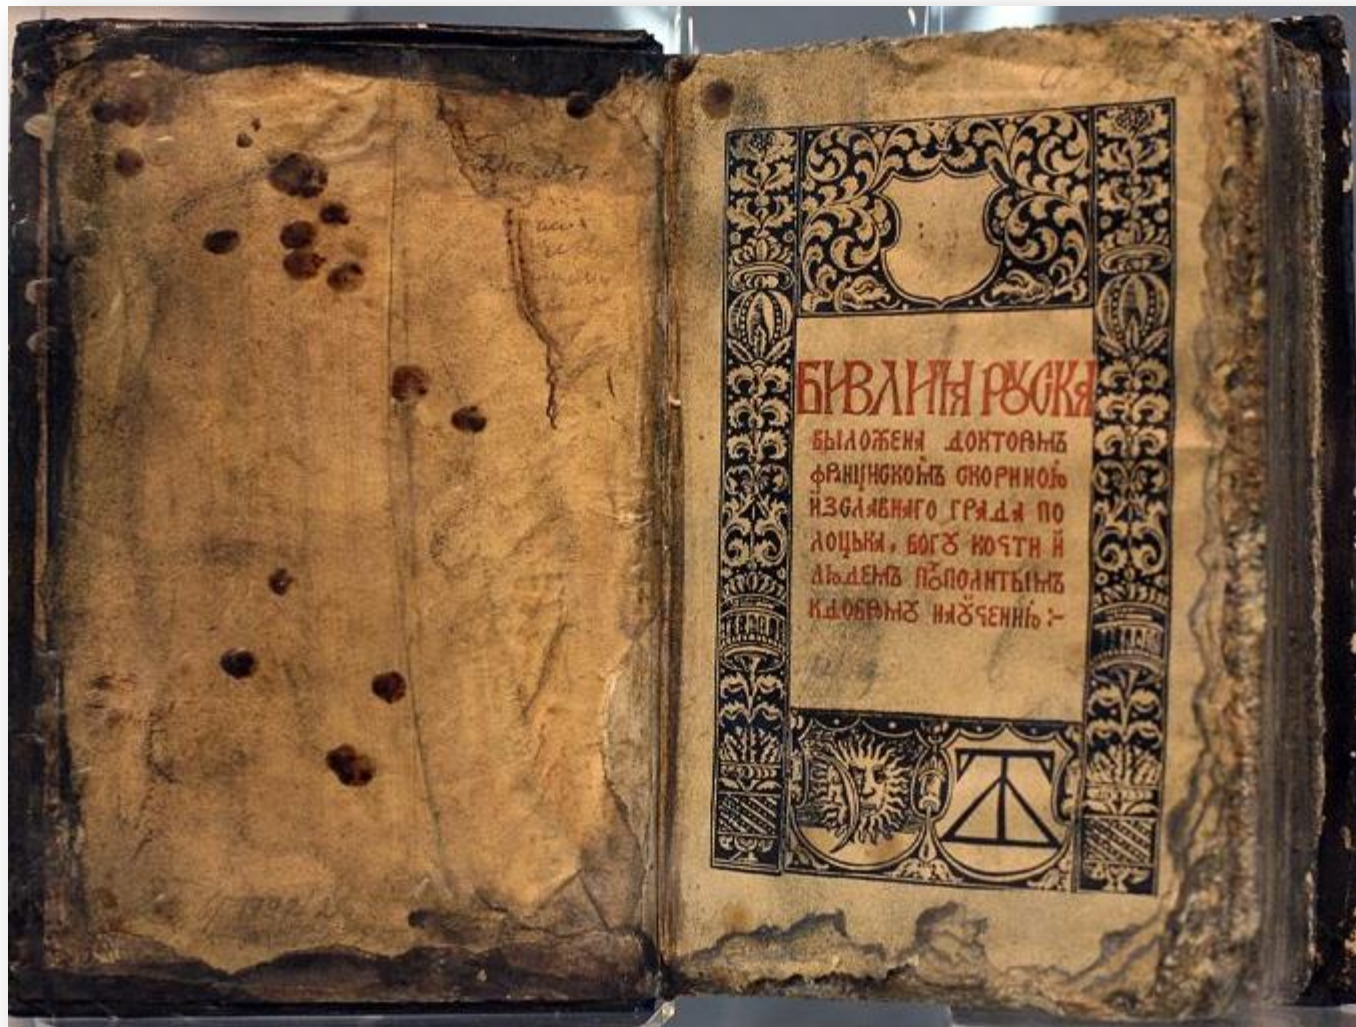 БИВЛИꙖ РꙊСКА
ВЫЛОЖЕНА ДОКТОРОМЪ
ФРАНЦИСКОМЪ СКОРИНОЮ
ИЗСЛАВНАГО ГРАДА ПО
ЛОЦЬКА, БОГꙊ КОЧТИ И
ЛЮДЕМЪ ПОСПОЛИТЫМЪ
КДОБРОМꙊ НАꙊЧЕНИЮ :–